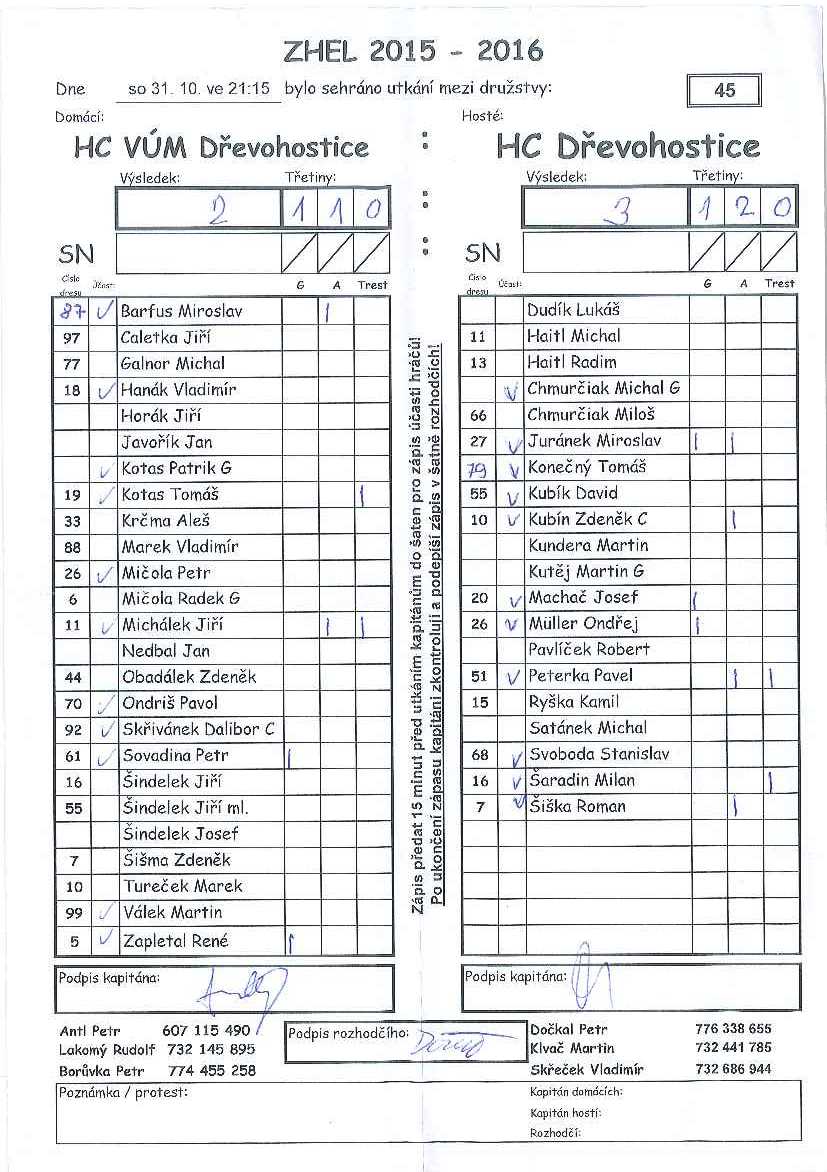 ZHEL 2015 - 2016
Dne so 31. 10. ve 21:15 bylo sehráno utkání mezi družstvy: 45
Domácí: Hosté:
HC VÚM Dřevohostice : HC Dřevohostice
Výsledek: Třetiny: Výsledek: Třetiny:
2 1 1 0 : 3 1 2 0
SN : SN
Číslo dresu Účast: G A Trest Číslo dresu Účast: G A Trest
87 ✓ Barfus Miroslav | Dudík Lukáš
97 Caletka Jiří 11 Haitl Michal
77 Galnor Michal 13 Haitl Radim
18 ✓ Hanák Vladimír ✓ Chmurčiak Michal G
Horák Jiří 66 Chmurčiak Miloš
Javořík Jan 27 ✓ Juránek Miroslav | |
✓ Kotas Patrik G 79 ✓ Konečný Tomáš
19 ✓ Kotas Tomáš | 55 ✓ Kubík David
33 Krčma Aleš 10 ✓ Kubín Zdeněk C |
88 Marek Vladimír Kundera Martin
26 ✓ Mičola Petr Kutěj Martin G
6 Mičola Radek G 20 ✓ Machač Josef |
11 ✓ Michálek Jiří | | 26 ✓ Müller Ondřej |
Nedbal Jan Pavlíček Robert
44 Obadálek Zdeněk 51 ✓ Peterka Pavel | |
70 ✓ Ondriš Pavol 15 Ryška Kamil
92 ✓ Skřivánek Dalibor C Satánek Michal
61 ✓ Sovadina Petr | 68 ✓ Svoboda Stanislav
16 Šindelek Jiří 16 ✓ Šaradin Milan |
55 Šindelek Jiří ml. 7 ✓ Šiška Roman |
Šindelek Josef
7 Šišma Zdeněk
10 Tureček Marek
99 ✓ Válek Martin
5 ✓ Zapletal René |
Zápis předat 15 minut před utkáním kapitánům do šaten pro zápis účasti hráčů!
Po ukončení zápasu kapitáni zkontrolují a podepíší zápis v šatně rozhodčích!
Podpis kapitána: Podpis kapitána:
Antl Petr 607 115 490 Podpis rozhodčího: Dočkal Petr 776 338 655
Lakomý Rudolf 732 145 895 Klvač Martin 732 441 785
Borůvka Petr 774 455 258 Skřeček Vladimír 732 686 944
Poznámka / protest: Kapitán domácích:
Kapitán hostí:
Rozhodčí: